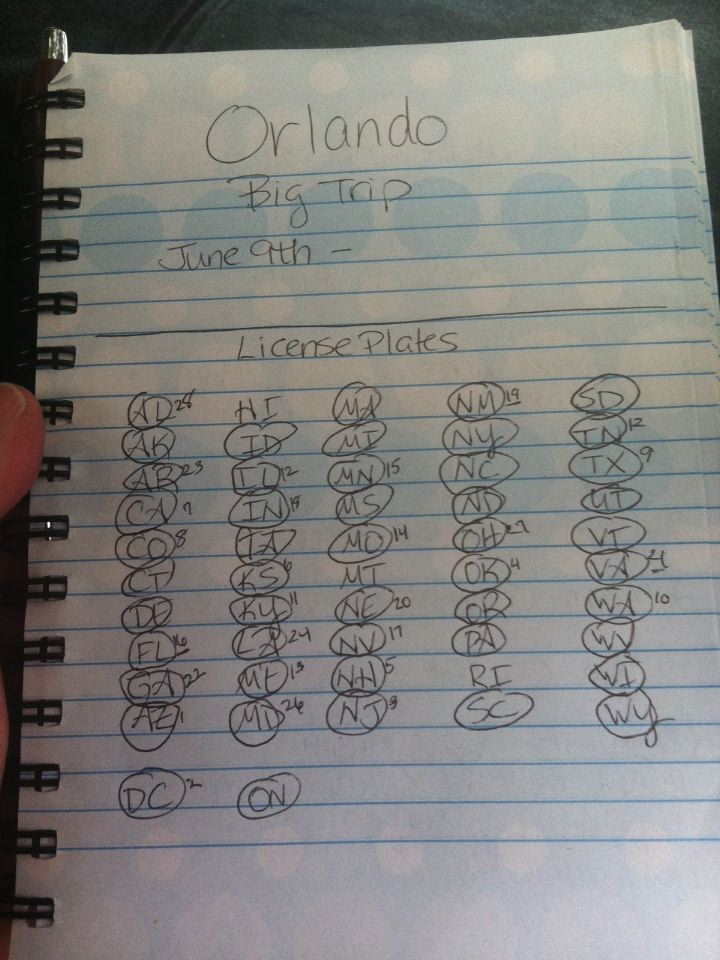 Orlando
Big Trip
June 9th -
License Plates
AL 28 HI MA NM 19 SD
AK ID MI NY TN 12
AR 23 IL 12 MN 15 NC TX 9
CA 7 IN 18 MS ND UT
CO 8 IA MO 14 OH 27 VT
CT KS 6 MT OK 4 VA 21
DE KY 11 NE 20 OR WA 10
FL 16 LA 24 NV 17 PA WV
GA 22 ME 13 NH 5 RI WI
AZ 1 MD 26 NJ 3 SC WY
DC 2 ON